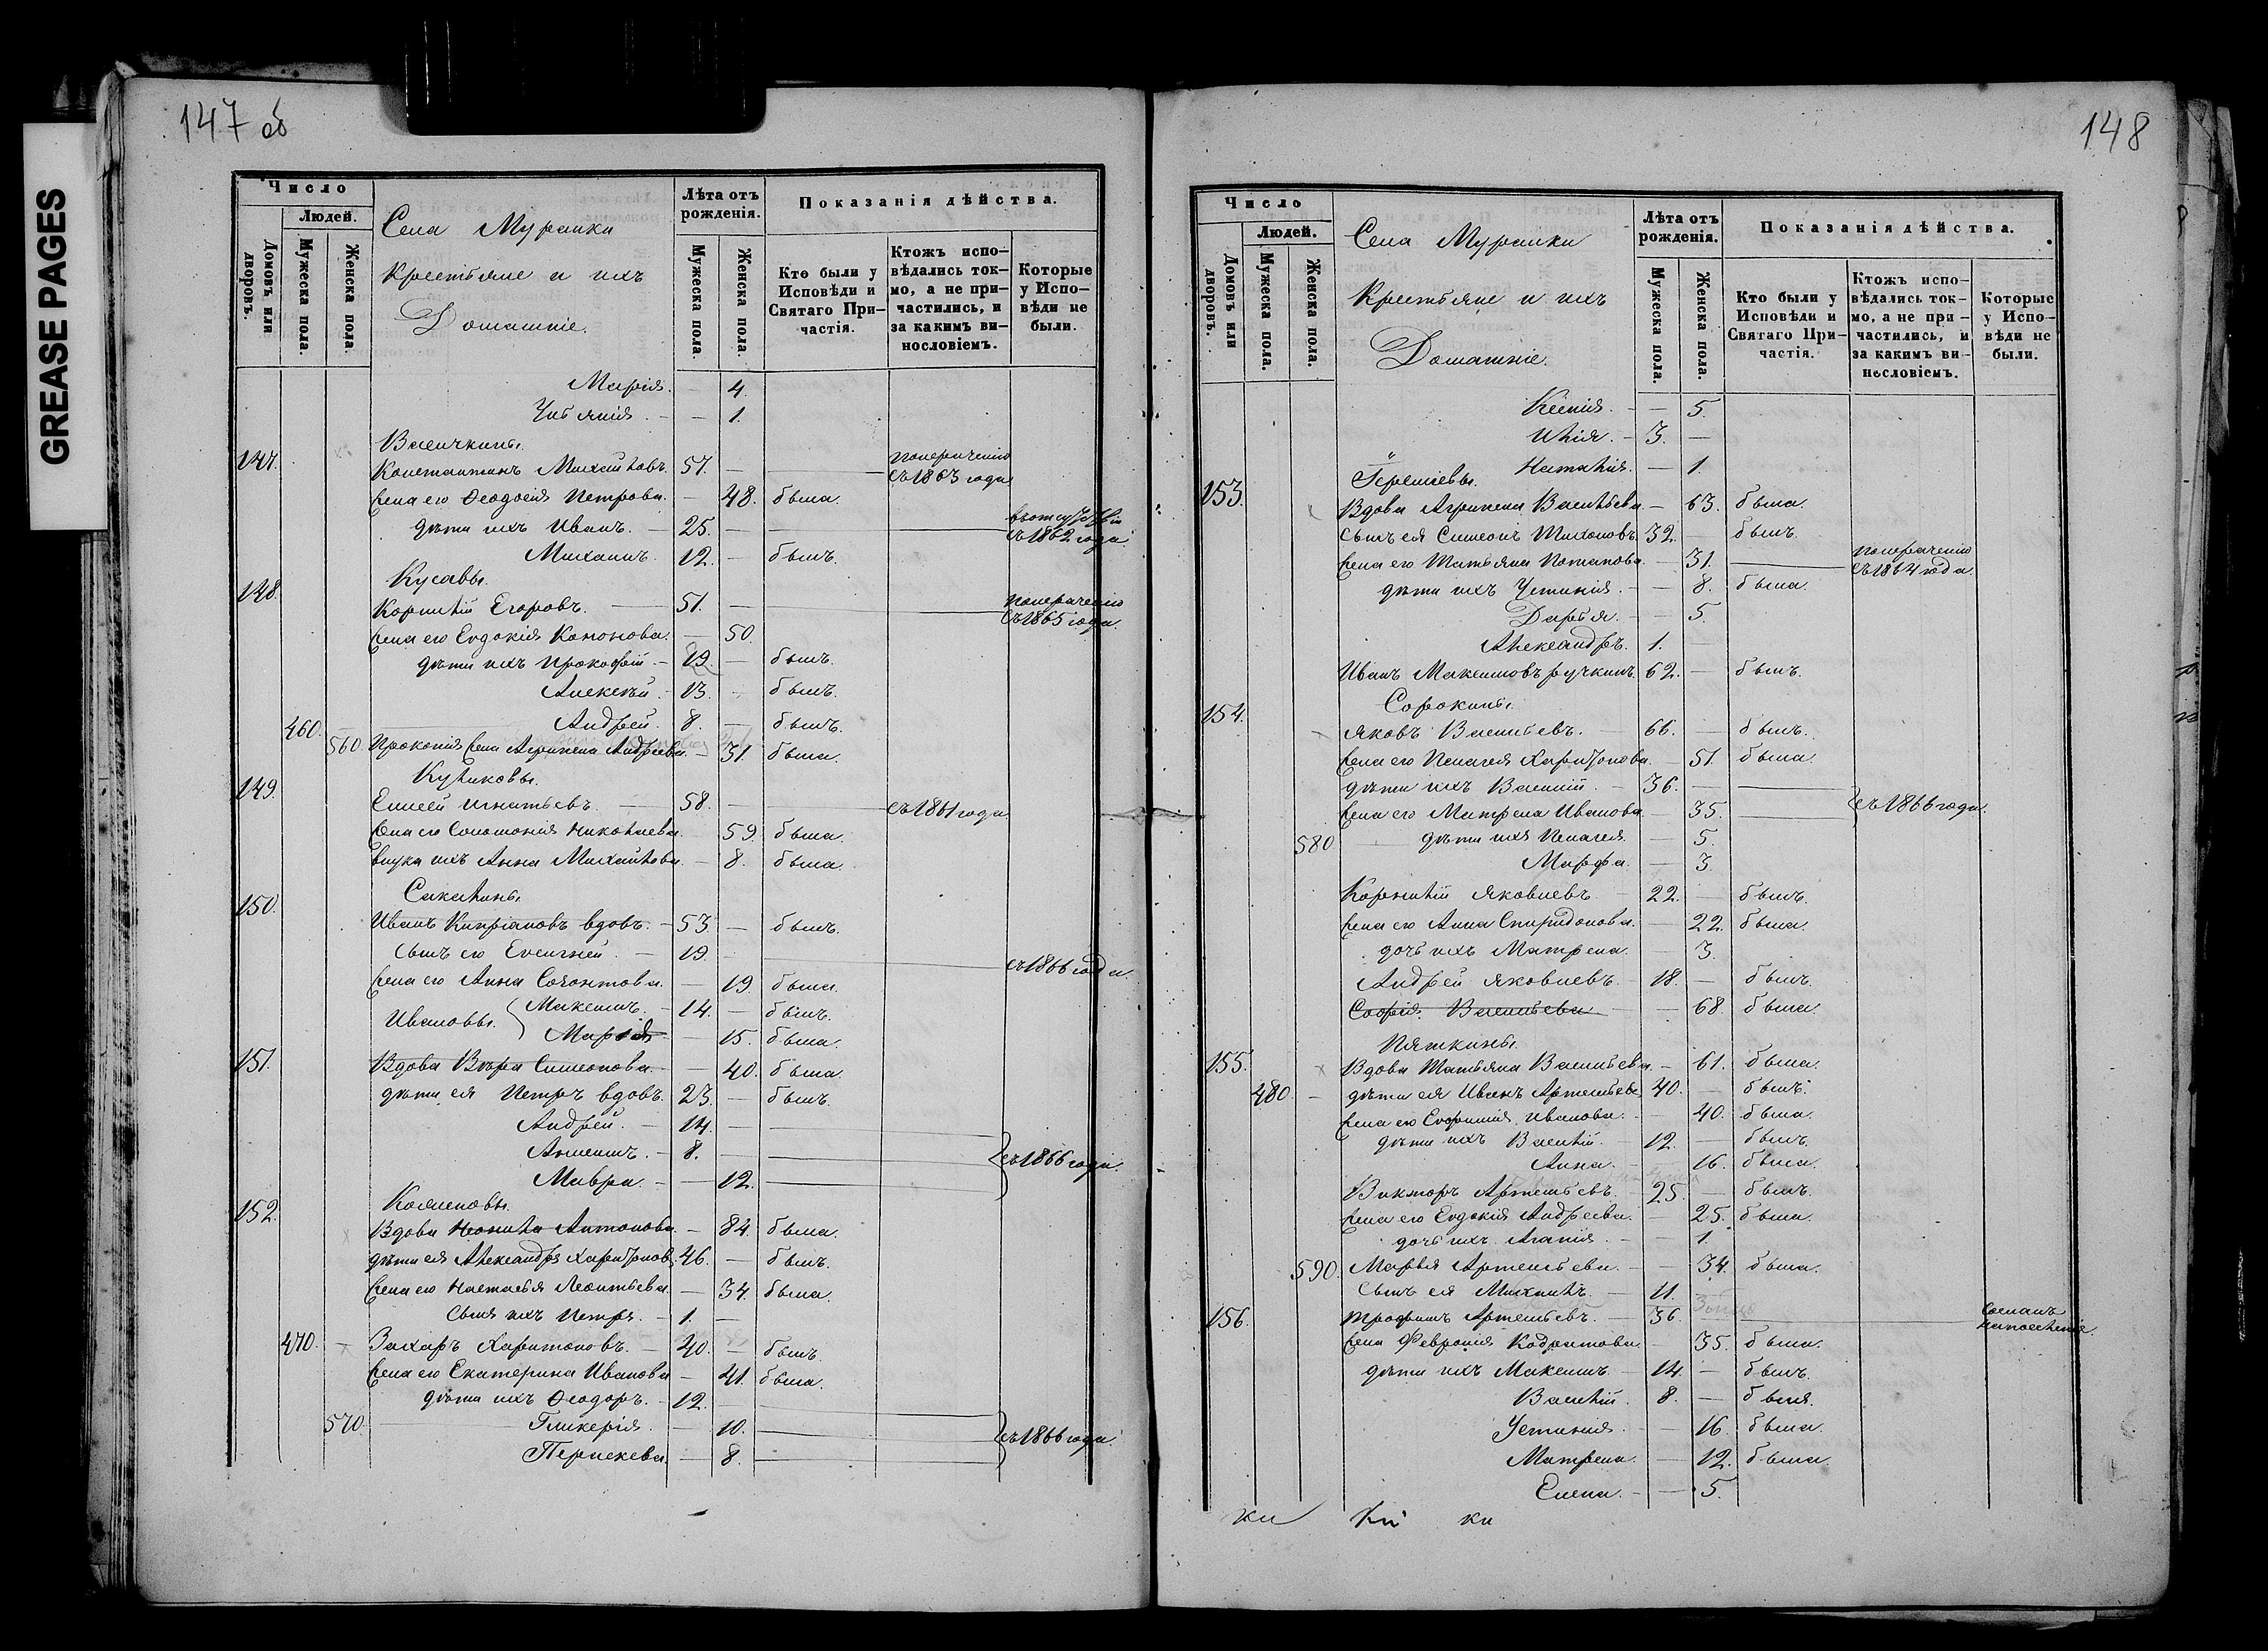 GREASE PAGES
147 об
Число
Людей.
Домовъ или дворовъ.
Мужеска пола.
Женска пола.
Села Муранки
Крестьяне и ихъ
Домашніе.
Лѣта отъ рожденія.
Мужеска пола.
Женска пола.
Показанія дѣйства.
Кто были у Исповѣди и Святаго При-частія.
Ктожъ испо-вѣдались ток-мо, а не при-частились, и за какимъ ви-нословіемъ.
Которые у Испо-вѣди не были.
Марія. — 4.
— 1.
147.
Константинъ Михайловъ. 57. — по нераченію съ 1863 года
жена его Ѳеодосія Петрова. — 48. была.
дѣти ихъ Иванъ. — 25. — въ отсутствіи съ 1862 года.
Михаилъ. 12. — былъ.
148. Кусавы.
Корнилій Егоровъ. 51. — по нераченію съ 1865 года.
жена его Евдокія Кононова. — 50.
дѣти ихъ Прокофій — 19. — былъ.
Алексѣй. — 13. — былъ.
460. Андрей. 8. — былъ.
560. Прокопія жена Агрипена Андреева. — 31. была.
149. Куликовы.
Елисей Игнатьевъ. 58. — съ 1861 года
жена его Соломонія Николаева. 59. была.
внука ихъ Анна Михайлова. — 8. была.
150. Сакалины.
Иванъ Кипріановъ вдовъ. — 53. — былъ.
сынъ его Евгеній. — 19. — съ 1866 года.
жена его Анна — 19. была.
Ивановы. Максимъ. — 14. — былъ.
Марія — 15. была.
151. Вдова Вѣра Симеонова. — 40. была.
дѣти ея Петръ вдовъ. 23. — былъ.
Андрей. — 14. —
8. —
съ 1866 года.
Мавра. — 12.
152.
Вдова Неонила Антонова. — 84. была.
дѣти ея Александръ Харитонов. 46. — былъ.
жена его Настасья Леонтьева. — 34. была.
сынъ ихъ Петръ. — 1. —
470. — Захаръ Харитоновъ. — 40. — былъ.
жена его Екатерина Иванова — 41. была.
дѣти ихъ Ѳеодоръ. — 12. —
570. Гликерія. — 10.
съ 1866 года.
Перпскева. — 8.
148
Число
Людей.
Домовъ или дворовъ.
Мужеска пола.
Женска пола.
Села Муранки
Крестьяне и ихъ
Домашніе.
Лѣта отъ рожденія.
Мужеска пола.
Женска пола.
Показанія дѣйства.
Кто были у Исповѣди и Святаго При-частія.
Ктожъ испо-вѣдались ток-мо, а не при-частились, и за какимъ ви-нословіемъ.
Которые у Испо-вѣди не были.
Ксенія. — — 5.
Илія. — 3. —
Наталія. — 1.
153.
Вдова Агрипена Васильева — 63. была.
сынъ ея Симеонъ Тихоновъ 32. — былъ.
жена его Татьяна Потапова. — 31. по нераченію съ 1864 года.
дѣти ихъ Устинія. — — 8. была.
Дарья. — — 5.
Александръ. 1. —
Иванъ Максимовъ ручкинъ. 62. — былъ.
154. Сорокины.
Яковъ Васильевъ. 66. — былъ.
жена его Пелагея Харитонова. — 51. была.
дѣти ихъ Василій. — 36. —
жена его Матрена Иванова. — 35.
съ 1866 года.
580. дѣти ихъ Пелагея. — 5.
Марфа. — 3.
Корнилій Яковлевъ. 22. — былъ.
жена его Анна Спиридонова. — 22. была.
дочь ихъ Матрена. — 3.
Андрей Яковлевъ. 18. — былъ.
Софія Васильева — 68. была.
Пяткины.
155. Вдова Татьяна Васильева. — 61. была.
480. — дѣти ея Иванъ Артемьевъ 40. — былъ.
жена его Евфимія Иванова. — 40. была.
дѣти ихъ Василій. — 12. — былъ.
Анна. — 16. была.
Викторъ Артемьевъ. — 25. — былъ.
жена его Евдокія Андреева. — 25. была.
дочь ихъ Агапія. — — 1.
590. Марья Артемьева. — — 34. была.
сынъ ея Михаилъ. — 11.
156. Трофимъ Артемьевъ. — 36. сосланъ на поселеніе.
жена Февронія Кодратова. — 35. была.
дѣти ихъ Максимъ. — 14. — былъ.
Василій. 8. — былъ.
Устинія. — 16. была.
Матрена. — 12. была.
Елена. — — 5.
ки ки ки